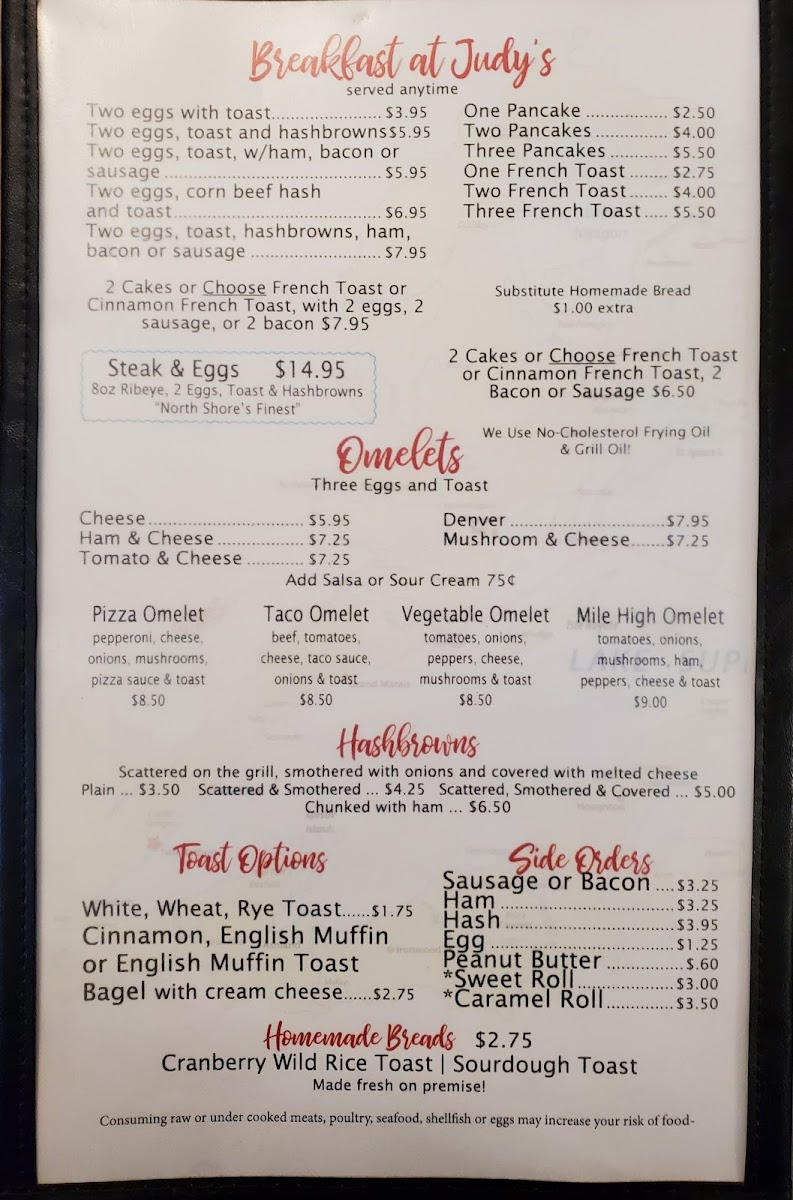 Breakfast at Judy's
served anytime
Two eggs with toast...................... $3.95
Two eggs, toast and hashbrowns$5.95
Two eggs, toast, w/ham, bacon or
sausage ........................................... $5.95
Two eggs, corn beef hash
and toast.......................................... $6.95
Two eggs, toast, hashbrowns, ham,
bacon or sausage .......................... $7.95
One Pancake ................. $2.50
Two Pancakes .............. $4.00
Three Pancakes ............ $5.50
One French Toast ........ $2.75
Two French Toast........ $4.00
Three French Toast..... $5.50
2 Cakes or Choose French Toast or
Cinnamon French Toast, with 2 eggs, 2
sausage, or 2 bacon $7.95
Substitute Homemade Bread
$1.00 extra
Steak & Eggs $14.95
8oz Ribeye, 2 Eggs, Toast & Hashbrowns
"North Shore's Finest"
2 Cakes or Choose French Toast
or Cinnamon French Toast, 2
Bacon or Sausage $6.50
We Use No-Cholesterol Frying Oil
& Grill Oil!
Omelets
Three Eggs and Toast
Cheese............................... $5.95
Ham & Cheese................. $7.25
Tomato & Cheese ............ $7.25
Denver ...............................$7.95
Mushroom & Cheese.......$7.25
Add Salsa or Sour Cream 75¢
Pizza Omelet
pepperoni, cheese,
onions, mushrooms,
pizza sauce & toast
$8.50
Taco Omelet
beef, tomatoes,
cheese, taco sauce,
onions & toast
$8.50
Vegetable Omelet
tomatoes, onions,
peppers, cheese,
mushrooms & toast
$8.50
Mile High Omelet
tomatoes, onions,
mushrooms, ham,
peppers, cheese & toast
$9.00
Hashbrowns
Scattered on the grill, smothered with onions and covered with melted cheese
Plain ... $3.50 Scattered & Smothered ... $4.25 Scattered, Smothered & Covered ... $5.00
Chunked with ham ... $6.50
Toast Options
White, Wheat, Rye Toast......$1.75
Cinnamon, English Muffin
or English Muffin Toast
Bagel with cream cheese......$2.75
Side Orders
Sausage or Bacon ....$3.25
Ham ...................................$3.25
Hash ..................................$3.95
Egg .....................................$1.25
Peanut Butter ................$.60
*Sweet Roll....................$3.00
*Caramel Roll..............$3.50
Homemade Breads $2.75
Cranberry Wild Rice Toast | Sourdough Toast
Made fresh on premise!
Consuming raw or under cooked meats, poultry, seafood, shellfish or eggs may increase your risk of food-